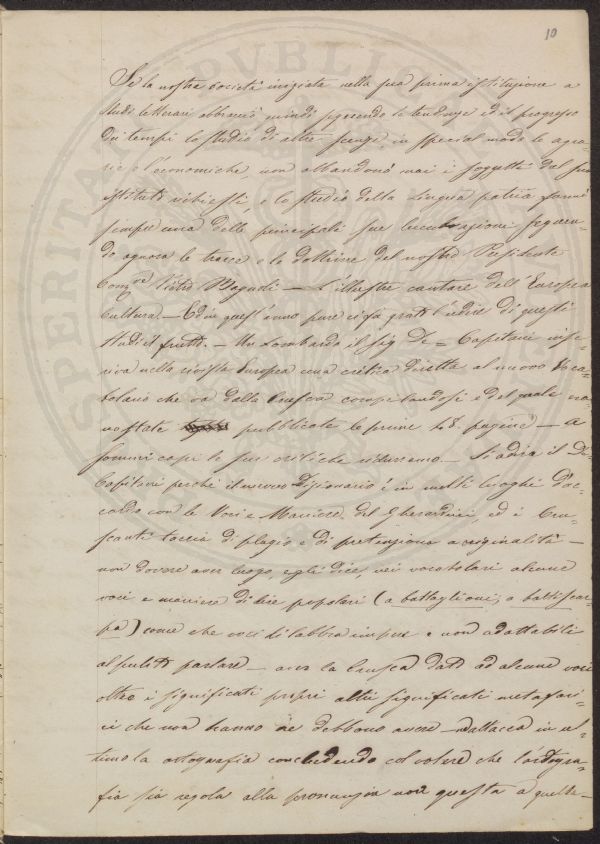 10
Se la nostra società iniziata nella sua prima istituzione a
studi letterari abbracciò quindi seguendo le tendenze ed il progresso
dei tempi lo studio di altre scienze, in special modo le agra-
rie e l'economiche, non abbandonò mai i soggetti del suo
istituto richiesti, e lo studio della Lingua patria formò
sempre una delle principali sue lucubrazioni seguen-
do ognora le tracce e le dottrine del nostro Presidente
Pietro — l'illustre cantore dell'Europea
Cultura. — Ed in quest'anno pure ci fu grato l'udire di questi
studi i frutti. — Un Lombardo il sig. De-Capitani inse-
riva nella rivista Europea una critica diretta al nuovo Voca-
bolario che va dalla Crusca compilandosi e del quale era-
no state pubblicate le prime 48. pagine — a
sommi capi le sue critiche ridurremo. — Si adira il De-
Capitani perché il nuovo Dizionario è in molti luoghi d'ac-
cordo con le Voci e Maniere del Gherardini, ed i Cru-
scanti taccia di plagio e di pretenzione a originalità —
non dovere aver luogo, egli dice, nei vocabolari alcune
voci e maniere di dire popolari (a battaglioni, a battiscar-
pa) come che voci di labbra impure e non adattabili
al pulito parlare — aver la Crusca dato ad alcune voci
oltre i significati propri altri significati metafori-
ci che non hanno ne debbono avere — attacca in ul-
timo la ortografia concludendo col volere che l'ortogra-
fia sia regola alla pronunzia non questa a quella —
SPERITA
PVBLICA